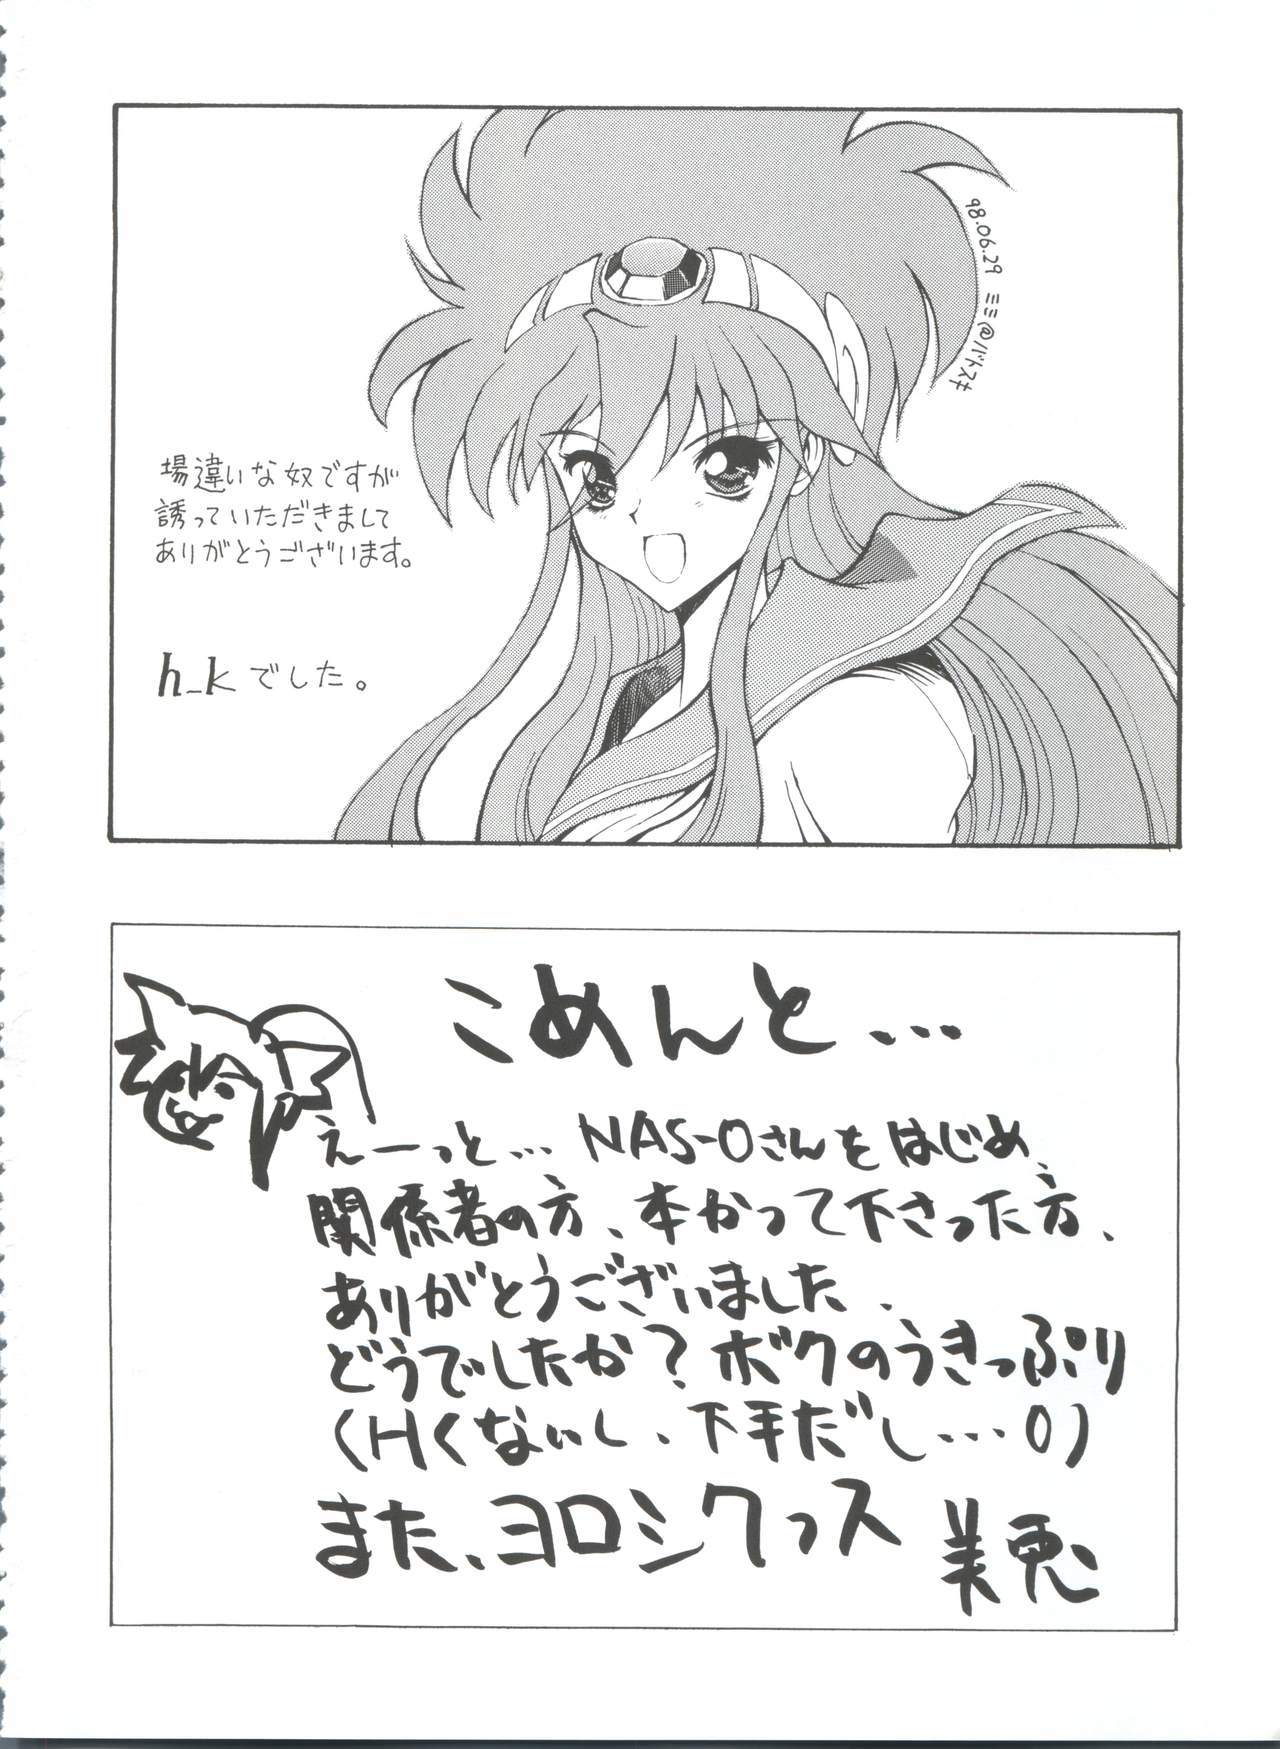 98.06.29 ミミ@バトスキ
場違いな奴ですが
誘っていただきまして
ありがとうございます。
h_kでした。
こめんと…
えーっと… NAS-Oさんをはじめ、
関係者の方、本かって下さった方、
ありがとうございました、
どうでしたか?ボクのうきっぷり
(Hくないし、下手だし…0)
また、ヨロシクっス
美兎